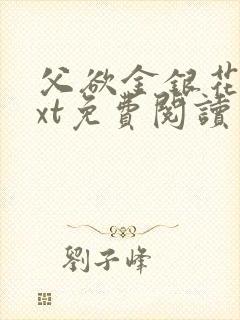 父欲金銀花
xt免費閱讀
劉子峰